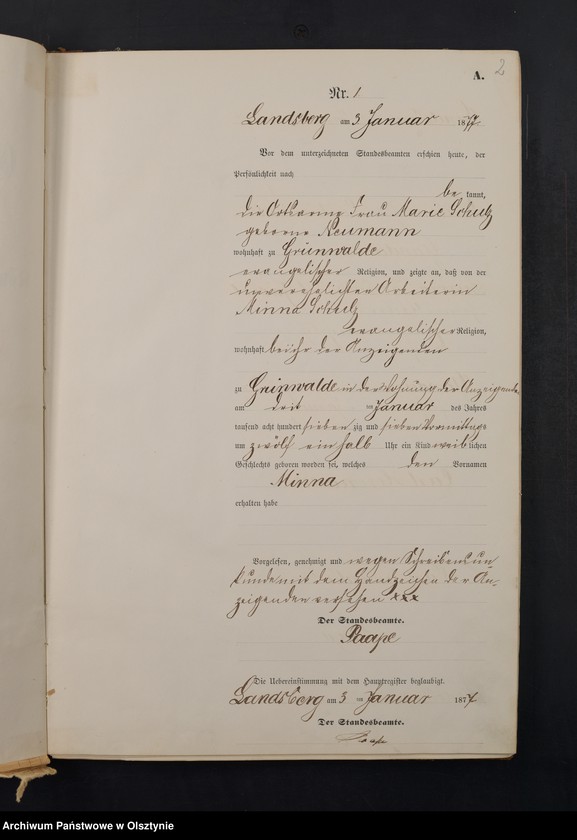 A. 2
Nr. 1
Landsberg am 3 Januar 1877
Vor dem unterzeichneten Standesbeamten erschien heute, der
Persönlichkeit nach
be kannt,
die Ortsarme Frau Marie Schulz
geborne Neumann
wohnhaft zu Grünwalde
evangelischer Religion, und zeigte an, daß von der
unverehelichten Arbeiterin
Minna Schulz
evangelischer Religion,
wohnhaft bei ihr der Anzeigenden
zu Grünwalde in der Wohnung der Anzeigenden
am ten Januar des Jahres
tausend acht hundert sieben zig und sieben Vormittags
um zwölf ein halb Uhr ein Kind weib lichen
Geschlechts geboren worden sei, welches den Vornamen
Minna
erhalten habe
Vorgelesen, genehmigt und wegen Schreibensun
kunde mit dem Handzeichen der An-
zeigenden versehen xxx
Der Standesbeamte.
Paape
Die Uebereinstimmung mit dem Hauptregister beglaubigt.
Landsberg am 3 ten Januar 1877
Der Standesbeamte.
Paape
Archiwum Państwowe w Olsztynie